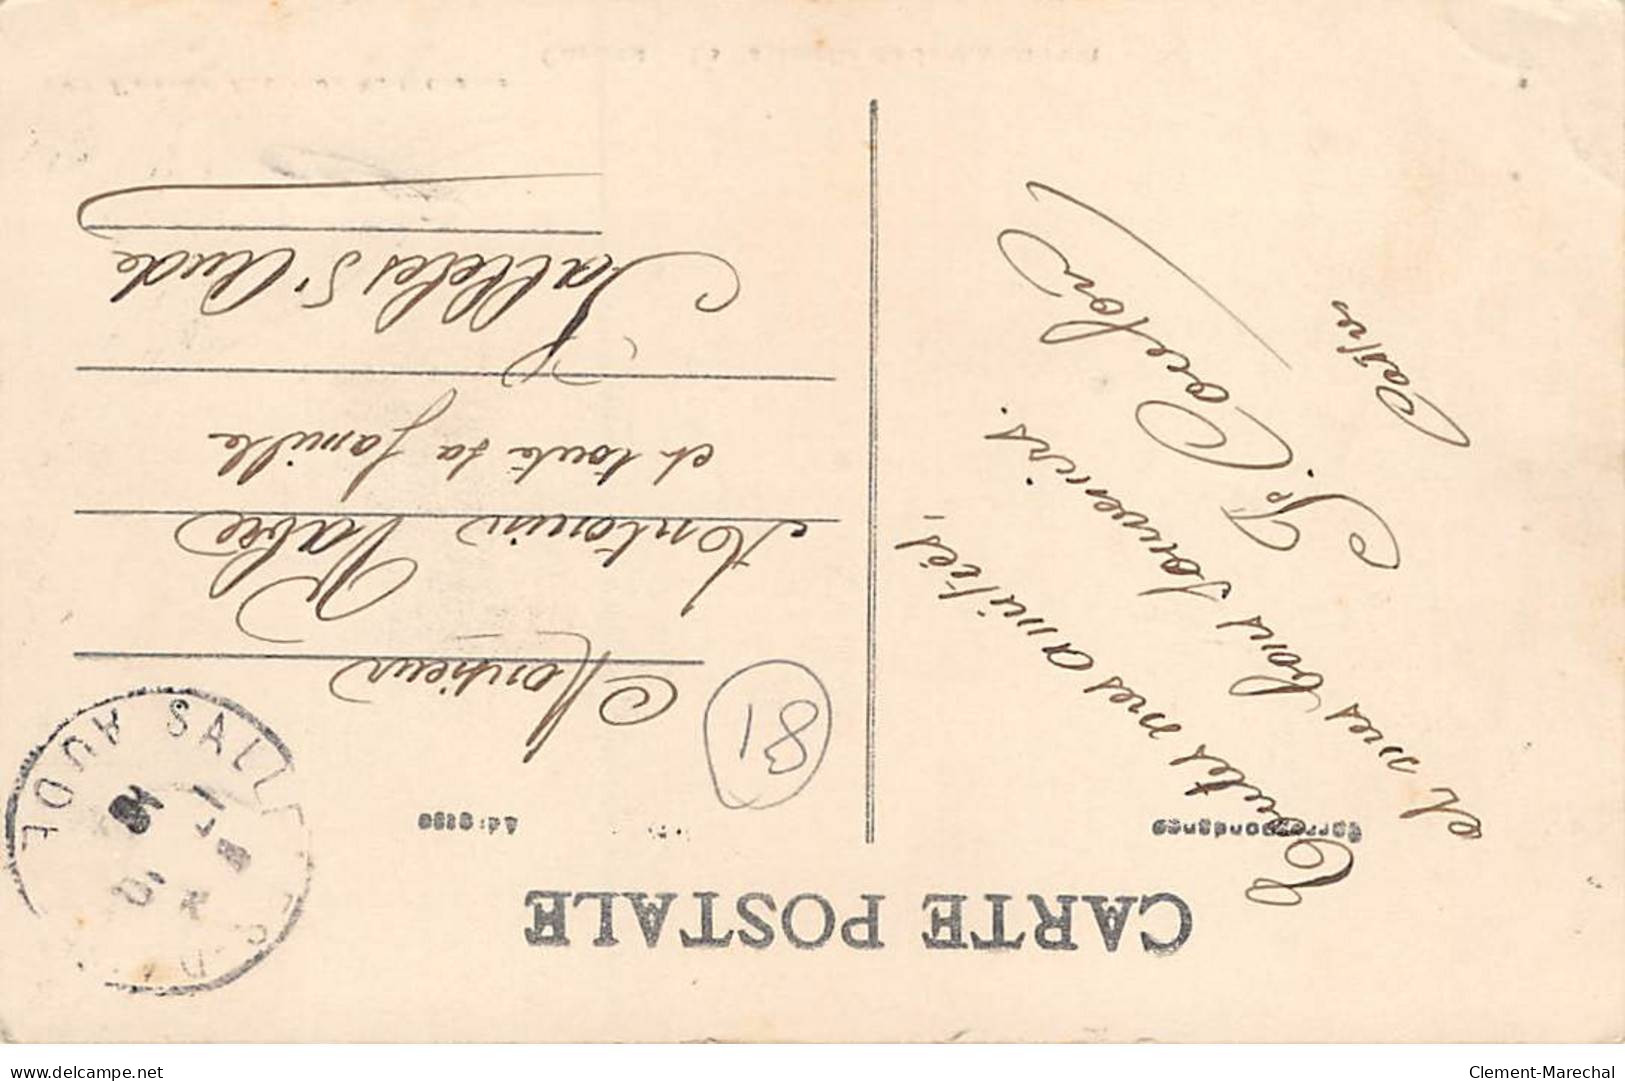 CARTE POSTALE
Correspondance
Adresse
Toutes mes amitiés,
et mes bons souvenirs.
Castres
81
Monsieur
Antonin Vabre
et toute sa famille
Salleles d'Aude
SALLELES-D'AUDE
AUDE
delcampe.net
Clement-Marechal